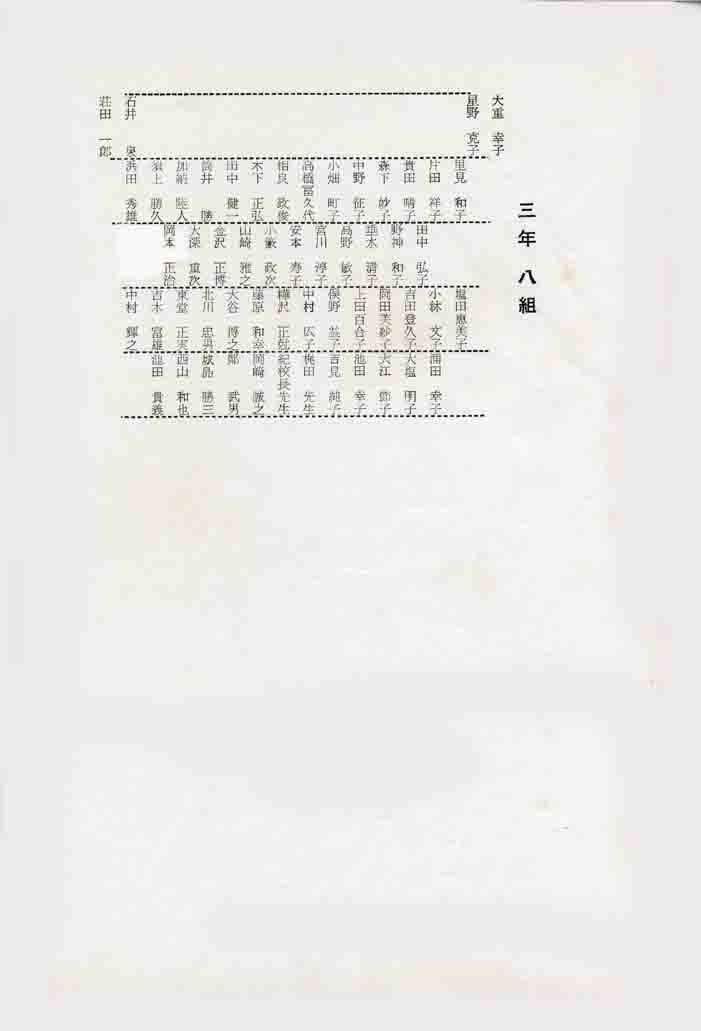 三年八組
大重 幸子
星野 寛子
石井 奥
荘田 一郎
里見 和子
片田 祥子
貴田 晴子
森下 妙子
中野 征子
小畑 町子
高橋冨久代
相良 政俊
木下 正弘
田中 健一
筒井 勝
加納 陸人
猿上 勝久
浜田 秀雄
田中 弘子
野神 和子
垂水 清子
高野 敏子
宮川 淳子
安本 寿子
小籔 政次
山崎 雅之
金沢 正博
大深 重次
岡本 正治
塩田恵美子
小林 文子
吉田登久子
岡田美紗子
上田百合子
俣野 益子
中村 広子
樺沢 正
藤原 和幸
大谷 博之
北川 忠男
東堂 正実
吉木 富雄
中村 輝之
浦田 幸子
大塩 明子
大江 節子
池田 幸子
吉見 純子
梶田 先生
紀校長先生
岡崎 誠之
郷 武男
城島 勝三
西山 和也
龍田 貴義